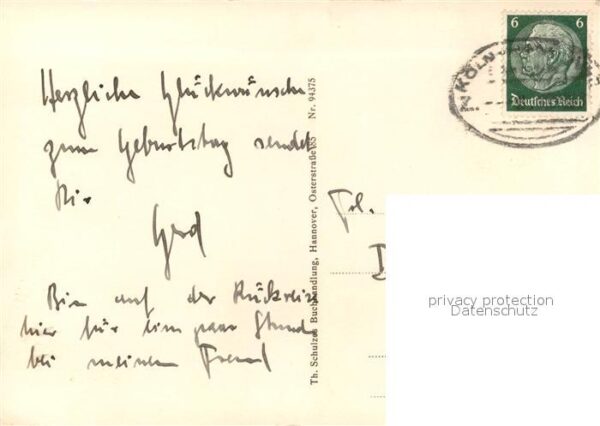 Herzliche Glückwünsche
zum Geburtstag sendet
Dir
Gerd
Bin auf der Rückreise
hier für ein paar Stund
bei meinem Freund
Th. Schulzes Buchhandlung, Hannover, Osterstraße 85 Nr. 94375
Frl.
6 6
Deutsches Reich
KÖLN
privacy protection
Datenschutz